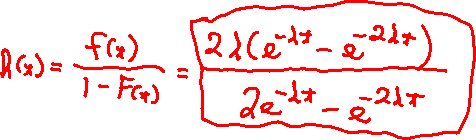 h(x) = f(x) / (1 - F(x)) = 2λ(e^{-λx} - e^{-2λx}) / (2e^{-λx} - e^{-2λx})